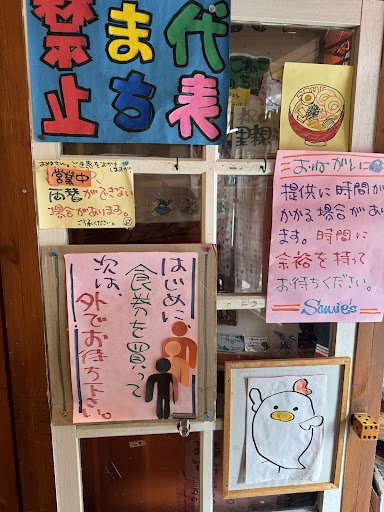 代表
まち
禁止
おねがいに
提供に時間が
かかる場合があり
ます。時間に
余裕を持って
お待ちください。
営業中
両替ができない
場合があります。
ご了承ください。
はじめに、
食券を買って
次は、
外でお待ち下さい。